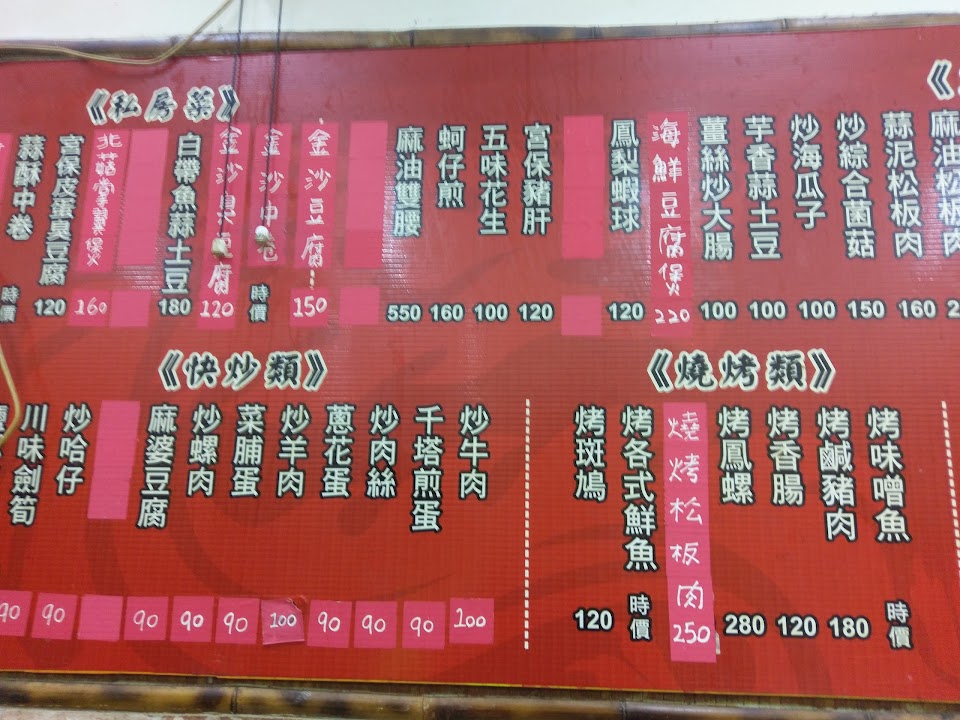 《私房菜》
麻油松板肉
蒜泥松板肉 160
炒綜合菌菇 150
炒海瓜子 100
芋香蒜土豆 100
薑絲炒大腸 100
海鮮豆腐煲 220
鳳梨蝦球 120
宮保豬肝 120
五味花生 100
蚵仔煎 160
麻油雙腰 550
金沙豆腐 150
金沙中卷 時價
金沙臭豆腐 120
白帶魚蒜土豆 180
北菇掌翼煲 160
宮保皮蛋臭豆腐 120
蒜酥中卷 時價
《燒烤類》
烤味噌魚 時價
烤鹹豬肉 180
烤香腸 120
烤鳳螺 280
燒烤松板肉 250
烤各式鮮魚 時價
烤斑鳩 120
《快炒類》
炒牛肉 100
千塔煎蛋 90
炒肉絲 90
蔥花蛋 90
炒羊肉 100
菜脯蛋 90
炒螺肉 90
麻婆豆腐 90
炒哈仔 90
川味劍筍 90